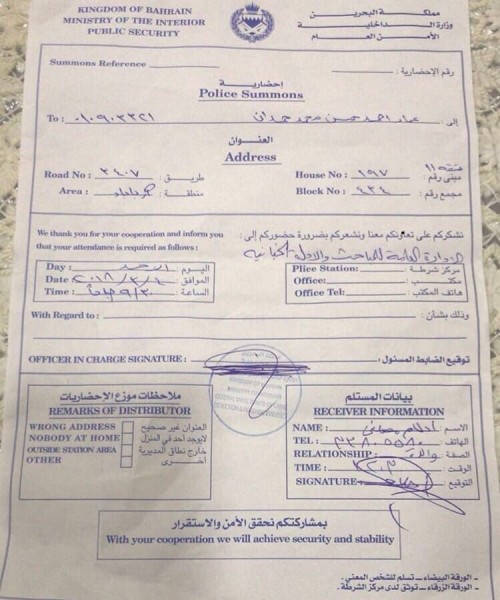 KINGDOM OF BAHRAIN
MINISTRY OF THE INTERIOR
PUBLIC SECURITY
مملكة البحرين
وزارة الداخلية
الأمن العام
Summons Reference :
رقم الإحضارية :
إحضارية
Police Summons
To : إلى :
العنوان
Address
Road No : ٣٤٠٧ طريق :
House No : ١٩٧ مبنى رقم :
Area : منطقة :
Block No : ٩٣٤ مجمع رقم :
We thank you for your cooperation and inform you
that your attendance is required as follows :
نشكركم على تعاونكم معنا ونشعركم بضرورة حضوركم إلى :
الإدارة العامة للمباحث والأدلة الجنائية
Day : الأحد اليوم :
Date : الموافق :
Time : ٩/٣٠ الساعة :
Plice Station: مركز شرطة :
Office: مكتب :
Office Tel: هاتف المكتب :
With Regard to : وذلك بشأن :
OFFICER IN CHARGE SIGNATURE : توقيع الضابط المسئول :
ملاحظات موزع الإحضاريات
REMARKS OF DISTRIBUTOR
WRONG ADDRESS العنوان غير صحيح
NOBODY AT HOME لايوجد أحد في المنزل
OUTSIDE STATION AREA خارج نطاق المديرية
OTHER أخرى
بيانات المستلم
RECEIVER INFORMATION
NAME : الاسم :
TEL : الهاتف :
RELATIONSHIP : والدة الصفة :
TIME : الوقت :
SIGNATURE : التوقيع :
بمشاركتكم نحقق الأمن والاستقرار
With your cooperation we will achieve security and stability
- الورقة البيضاء - تسلم للشخص المعني .
- الورقة الزرقاء - توثق لدى مركز الشرطة .